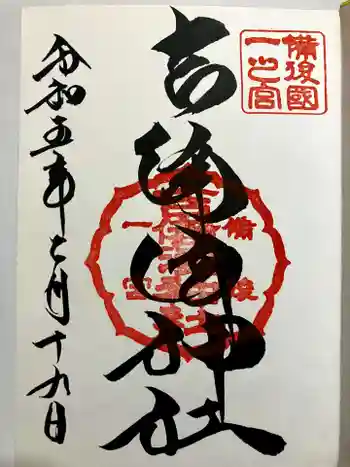 備後國
一之宮
吉備津神社
令和五年七月十九日